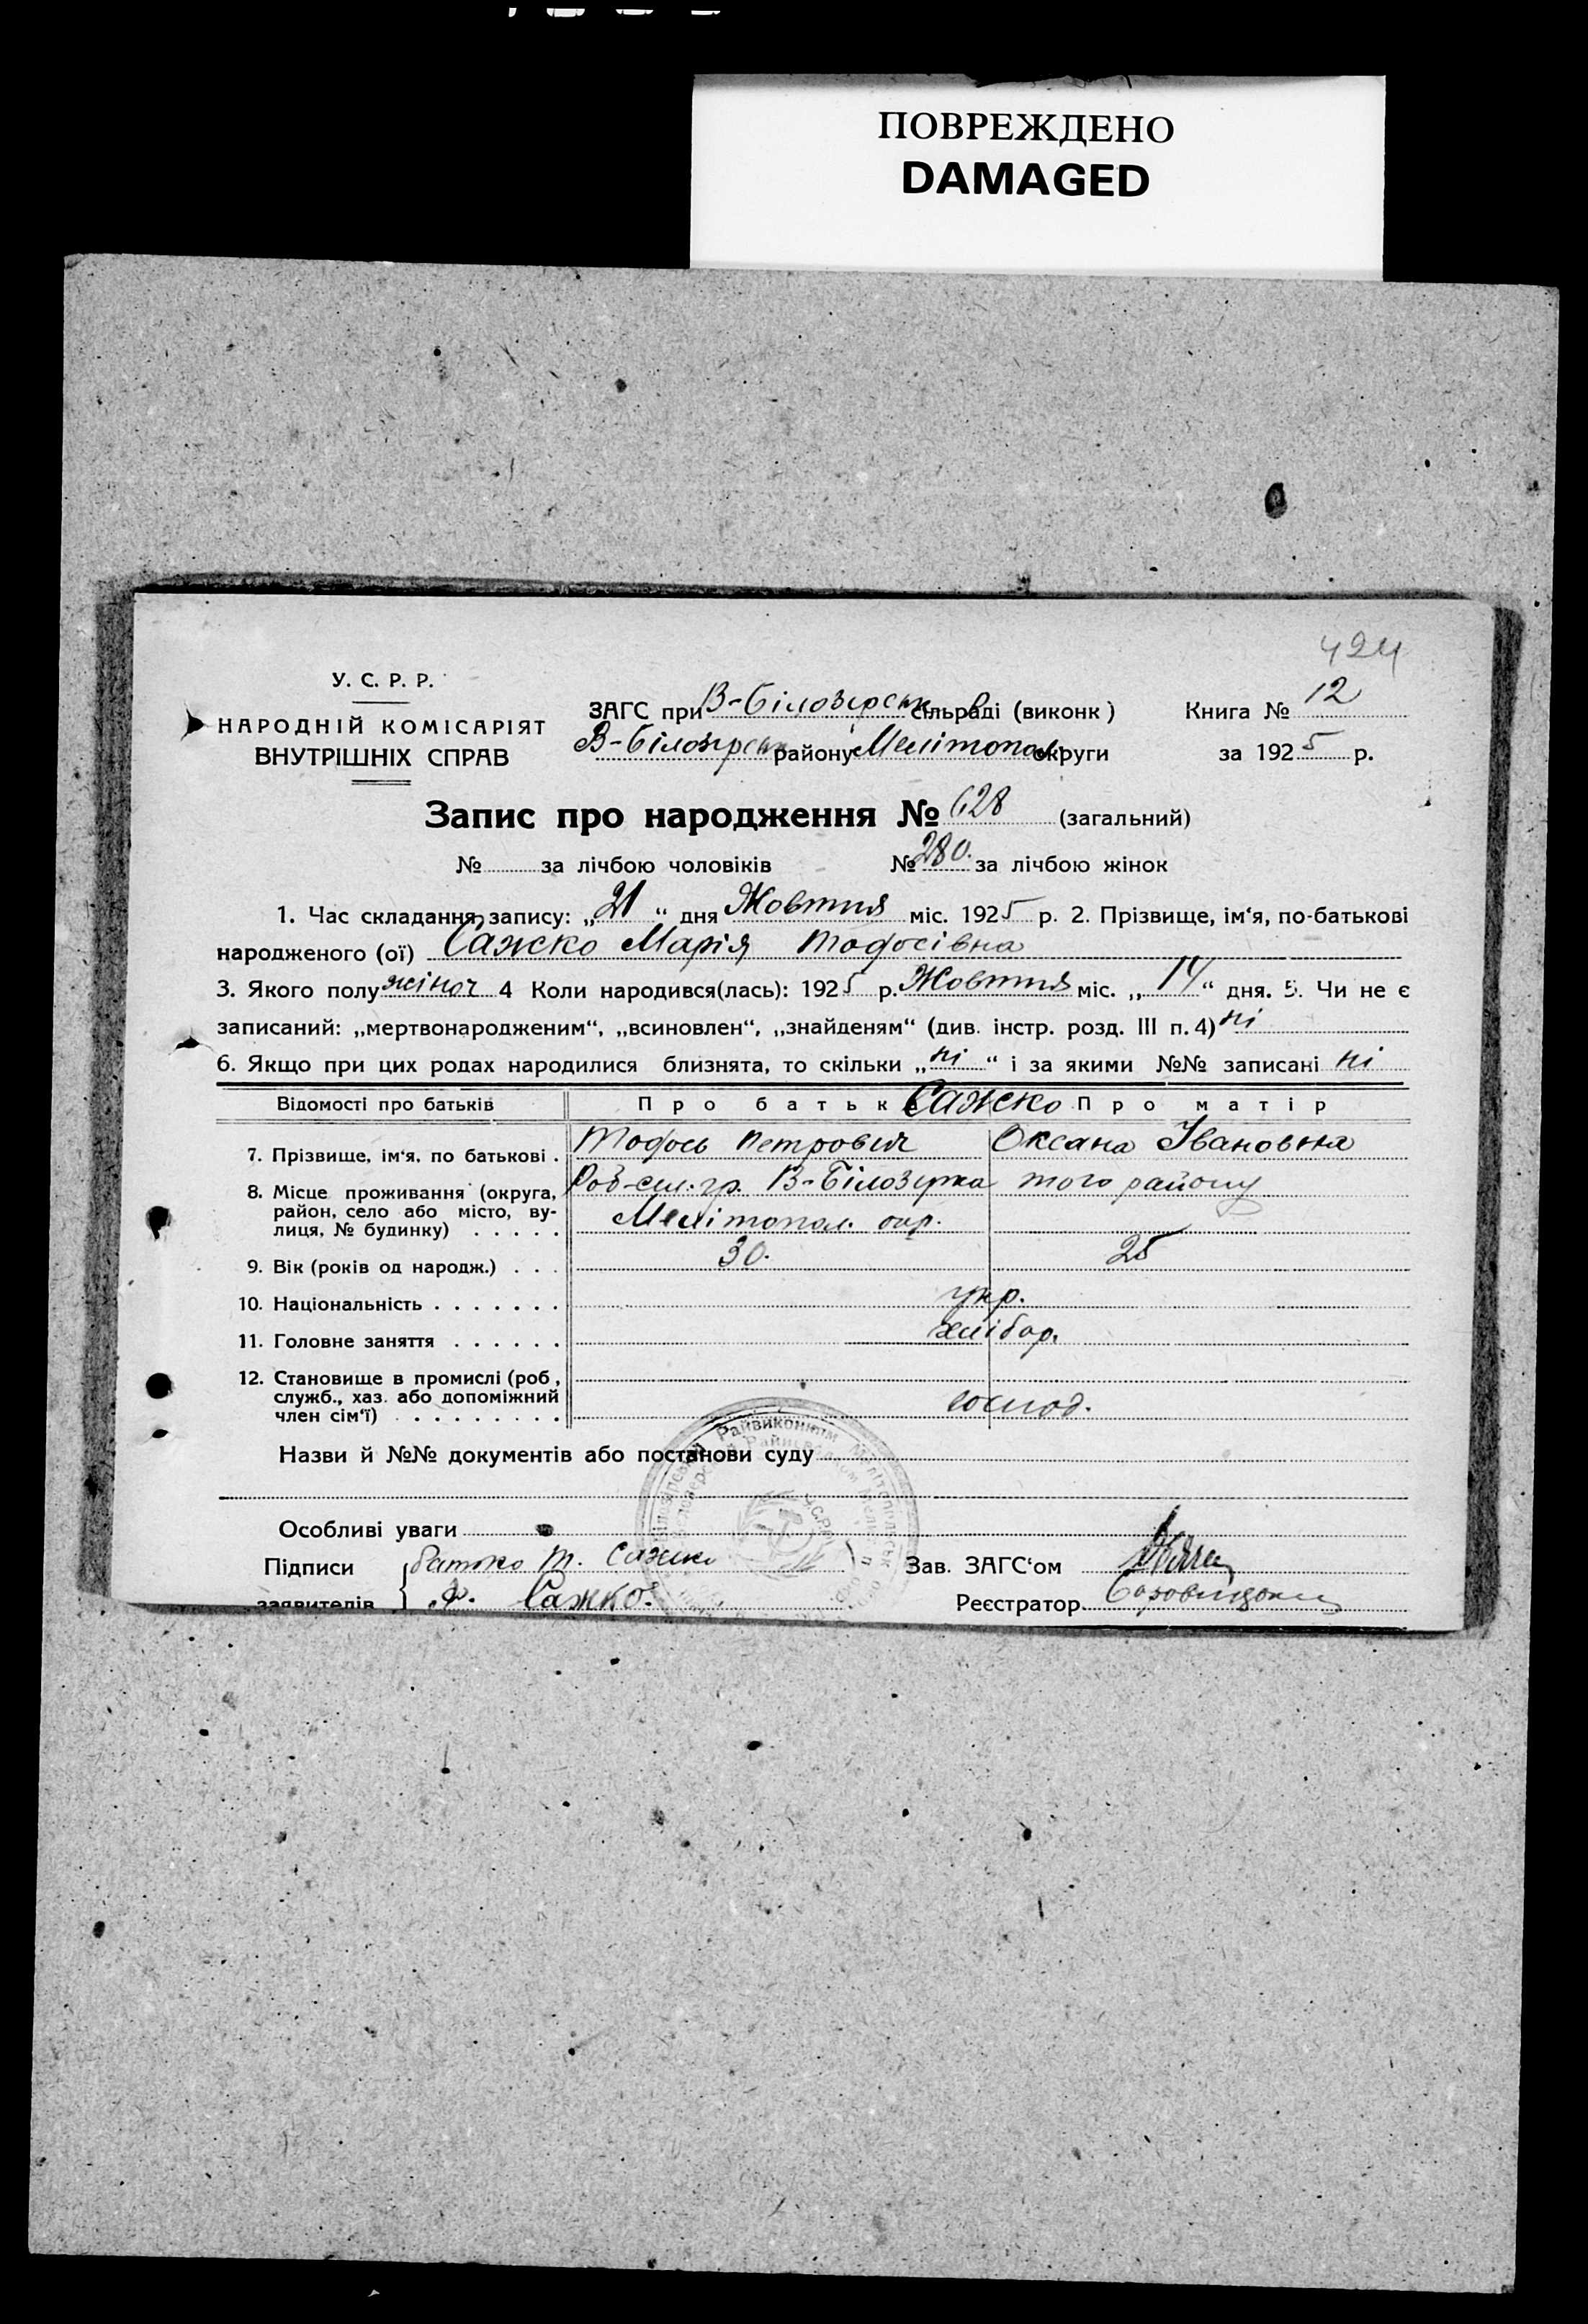 ПОВРЕЖДЕНО
DAMAGED
424
У. С. Р. Р.
НАРОДНІЙ КОМІСАРІЯТ
ВНУТРІШНІХ СПРАВ
ЗАГС при В-Білозерськ сільраді (виконк) Книга № 12
В-Білозерськ району Мелітопол. округи за 1925 р.
Запис про народження № 628 (загальний)
№ за лічбою чоловіків № 280. за лічбою жінок
1. Час складання запису: „21“ дня Жовтня міс. 1925 р. 2. Прізвище, ім‘я, по-батькові
народженого (ої) Сажко Марія Тодосівна
3. Якого полу жіноч 4 Коли народився(лась): 1925 р. Жовтня міс. „14“ дня. 5. Чи не є
записаний: „мертвонародженим“, „всиновлен“, „знайденям“ (див. інстр. розд. III п. 4) ні
6. Якщо при цих родах народилися близнята, то скільки „ні“ і за якими №№ записані ні
Відомості про батьків Про батька Сажко Про матір
7. Прізвище, ім‘я, по батькові . Тодось Петрович Оксана Івановна
8. Місце проживання (округа, район, село або місто, вулиця, № будинку) . . . . . В-Білозерка того району
Мелітопол. окр.
9. Вік (років од народж.) . . . 30. 25
10. Національність . . . . . . . укр.
11. Головне заняття . . . . . . хлібор.
12. Становище в промислі (роб, служб., хаз. або допоміжний член сім‘ї) . . . . . . . . . господ.
Назви й №№ документів або постанови суду
Особливі уваги
Підписи батько Т. Сажко Зав. ЗАГС‘ом
заявителів Сажко. Реєстратор